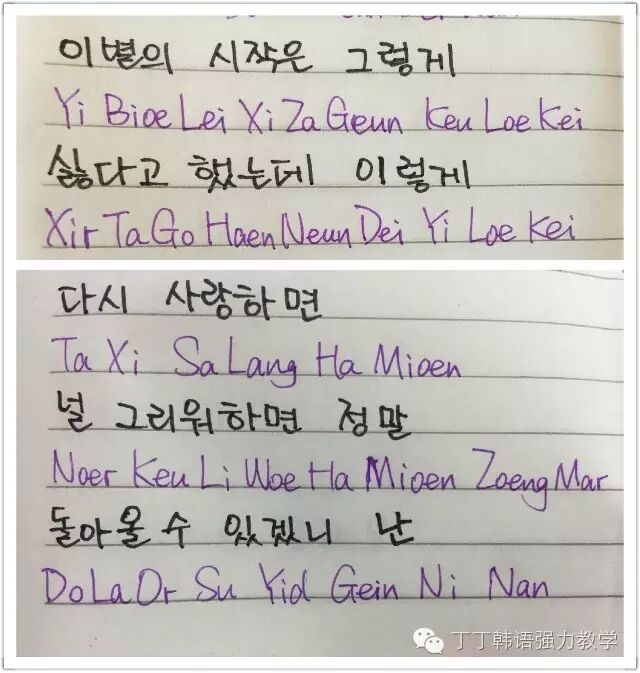 이별의 시작은 그렇게
Yi Bioe Lei Xi Za Geun Keu Loe Kei
싫다고 했는데 이렇게
Xir Ta Go Haen Neun Dei Yi Loe Kei
다시 사랑하면
Ta Xi Sa Lang Ha Mioen
널 그리워하면 정말
Noer Keu Li Woe Ha Mioen Zoeng Mar
돌아올 수 있겠니 난
Do La Or Su Yid Gein Ni Nan
丁丁韩语强力教学